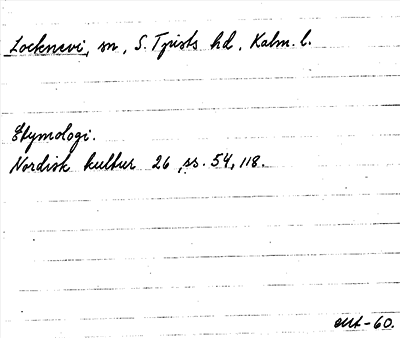 Locknevi, sn, S. Tjusts hd, Kalm. l.
Etymologi.
Nordisk kultur 26, ss. 54, 118.
-60.